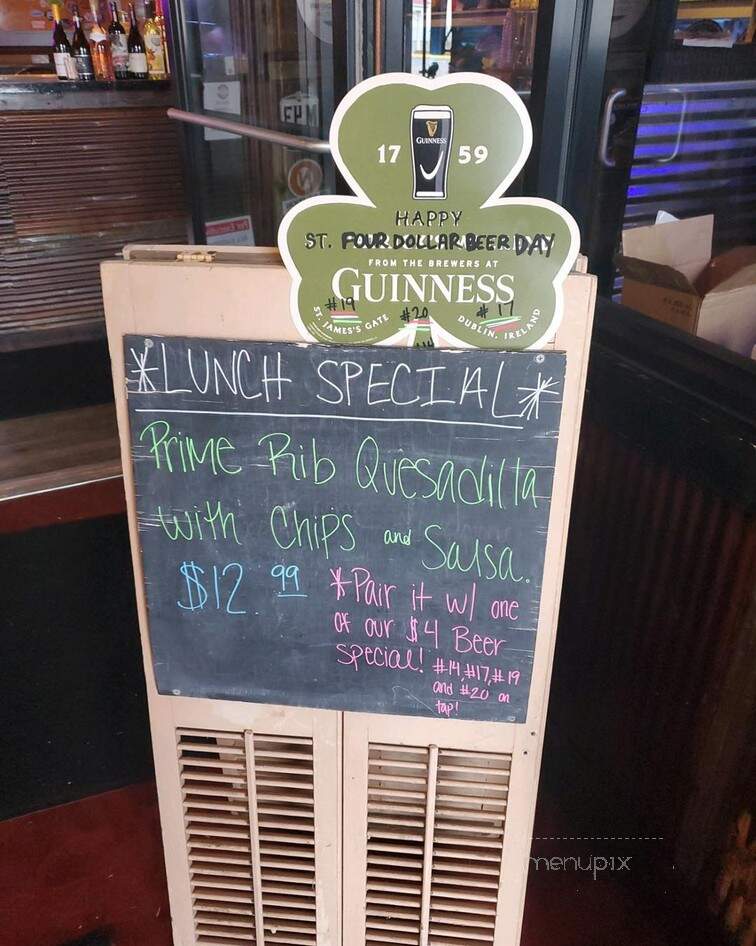 GUINNESS
17 59
HAPPY
ST. FOUR DOLLAR BEER DAY
FROM THE BREWERS AT
GUINNESS
#19 #20 #17
ST. JAMES'S GATE DUBLIN, IRELAND
*LUNCH SPECIAL*
Prime Rib Quesadilla
with Chips and Salsa.
$12.99
*Pair it w/ one
of our $4 Beer
Special! #14, #17, #19
and #20 on
tap!
menupix